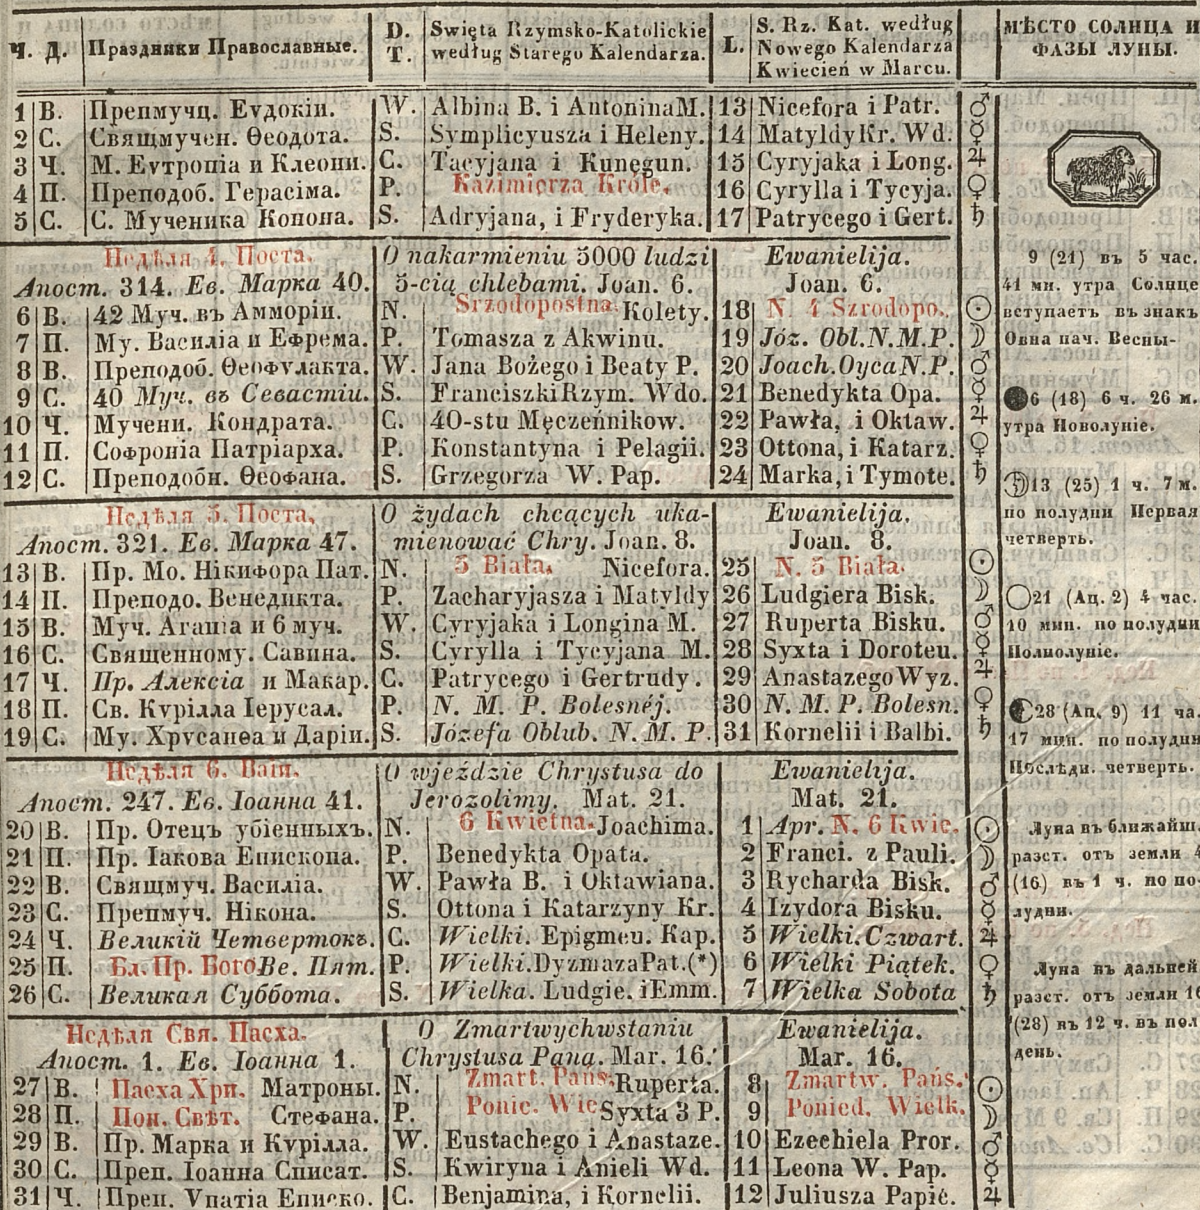 Ч. Д. Праздники Православные. D. T. Swięta Rzymsko-Katolickie według Starego Kalendarza. L. S. Rz. Kat. według Nowego Kalendarza Kwiecień w Marcu. МѢСТО СОЛНЦА И ФАЗЫ ЛУНЫ.
1 В. Препмучц. Еѵдокіи. W. Albina B. i Antonina M. 13 Nicefora i Patr. ♂
2 С. Свящмучен. Ѳеодота. S. Symplicyusza i Heleny. 14 Matyldy Kr. Wd. ☿
3 Ч. М. Еѵтропіа и Клеони. C. Tacyjana i Kunęgun. 15 Cyryjaka i Long. ♃
4 П. Преподоб. Герасіма. P. Kazimierza Króle. 16 Cyrylla i Tycyja. ♀
5 С. С. Мученика Конона. S. Adryjana, i Fryderyka. 17 Patrycego i Gert. ♄
Недѣля 4. Поста. O nakarmieniu 5000 ludzi Ewanielija.
Апост. 314. Ев. Марка 40. 5-cią chlebami. Joan. 6. Joan. 6.
6 В. 42 Муч. въ Амморіи. N. Srzodopostna. Kolety. 18 N. 4 Szrodopo. ☉
7 П. Му. Василіа и Ефрема. P. Tomasza z Akwinu. 19 Józ. Obl. N. M. P. ☽
8 В. Преподоб. Ѳеофѵлакта. W. Jana Bożego i Beaty P. 20 Joach. Oyca N. P. ♂
9 С. 40 Муч. въ Севастіи. S. Franciszki Rzym. Wdo. 21 Benedykta Opa. ☿
10 Ч. Мучени. Кондрата. C. 40-stu Męczeńnikow. 22 Pawła, i Oktaw. ♃
11 П. Софроніа Патріарха. P. Konstantyna i Pelagii. 23 Ottona, i Katarz. ♀
12 С. Преподобн. Ѳеофана. S. Grzegorza W. Pap. 24 Marka, i Tymote. ♄
Недѣля 5. Поста. O żydach chcących uka- Ewanielija.
Апост. 321. Ев. Марка 47. mienować Chry. Joan. 8. Joan. 8.
13 В. Пр. Мо. Нікифора Пат. N. 5 Biała. Nicefora. 25 N. 5 Biała. ☉
14 П. Преподо. Венедикта. P. Zacharyjasza i Matyldy 26 Ludgiera Bisk. ☽
15 В. Муч. Агапіа и 6 муч. W. Cyryjaka i Longina M. 27 Ruperta Bisku. ♂
16 С. Священному. Савина. S. Cyrylla i Tycyjana M. 28 Syxta i Doroteu. ☿
17 Ч. Пр. Алексіа и Макар. C. Patrycego i Gertrudy. 29 Anastazego Wyz. ♃
18 П. Св. Кѵрілла Іерусал. P. N. M. P. Bolesnéj. 30 N. M. P. Bolesn. ♀
19 С. Му. Хрѵсанѳа и Даріи. S. Józefa Oblub. N. M. P. 31 Kornelii i Balbi. ♄
Недѣля 6. Ваіи. O wjeździe Chrystusa do Ewanielija.
Апост. 247. Ев. Іоанна 41. Jerozolimy. Mat. 21. Mat. 21.
20 В. Пр. Отецъ убіенныхъ. N. 6 Kwietna. Joachima. 1 Apr. N. 6 Kwie. ☉
21 П. Пр. Іакова Епископа. P. Benedykta Opata. 2 Franci. z Pauli. ☽
22 В. Свящмуч. Василіа. W. Pawła B. i Oktawiana. 3 Rycharda Bisk. ♂
23 С. Препмуч. Нікона. S. Ottona i Katarzyny Kr. 4 Izydora Bisku. ☿
24 Ч. Великій Четвертокъ. C. Wielki. Epigmeu. Kap. 5 Wielki. Czwart. ♃
25 П. Бл. Пр. Бого Ве. Пят. P. Wielki. Dyzmaza Pat. (*) 6 Wielki Piątek. ♀
26 С. Великая Суббота. S. Wielka. Ludgie. i Emm. 7 Wielka Sobota ♄
Недѣля Свя. Пасха. O Zmartwychwstaniu Ewanielija.
Апост. 1. Ев. Іоанна 1. Chrystusa Pana. Mar. 16. Mar. 16.
27 В. Пасха Хри. Матроны. N. Zmart. Pańs. Ruperta. 8 Zmartw. Pańs. ☉
28 П. Пон. Свѣт. Стефана. P. Ponie. Wie Syxta 3 P. 9 Ponied. Wielk. ☽
29 В. Пр. Марка и Кѵрілла. W. Eustachego i Anastaze. 10 Ezechiela Pror. ♂
30 С. Преп. Іоанна Списат. S. Kwiryna i Anieli Wd. 11 Leona W. Pap. ☿
31 Ч. Преп. Ѵпатіа Еписко. C. Benjamina, i Kornelii. 12 Juliusza Papie. ♃
9 (21) въ 5 час.
41 мн. утра Солнце
вступаетъ въ знакъ
Овна нач. Весны-
6 (18) 6 ч. 26 м.
утра Новолуніе.
13 (25) 1 ч. 7 м.
по полудни Первая
четверть.
21 (Ап. 2) 4 час.
10 мин. по полудни
Полнолуніе.
28 (Ап. 9) 11 ча.
17 мин. по полудни
Послѣдн. четверть.
Луна въ ближайш.
разст. отъ земли 4
(16.) въ 1 ч. по по-
лудни.
Луна въ дальней
разст. отъ земли 16
(28) въ 12 ч. въ пол
день.